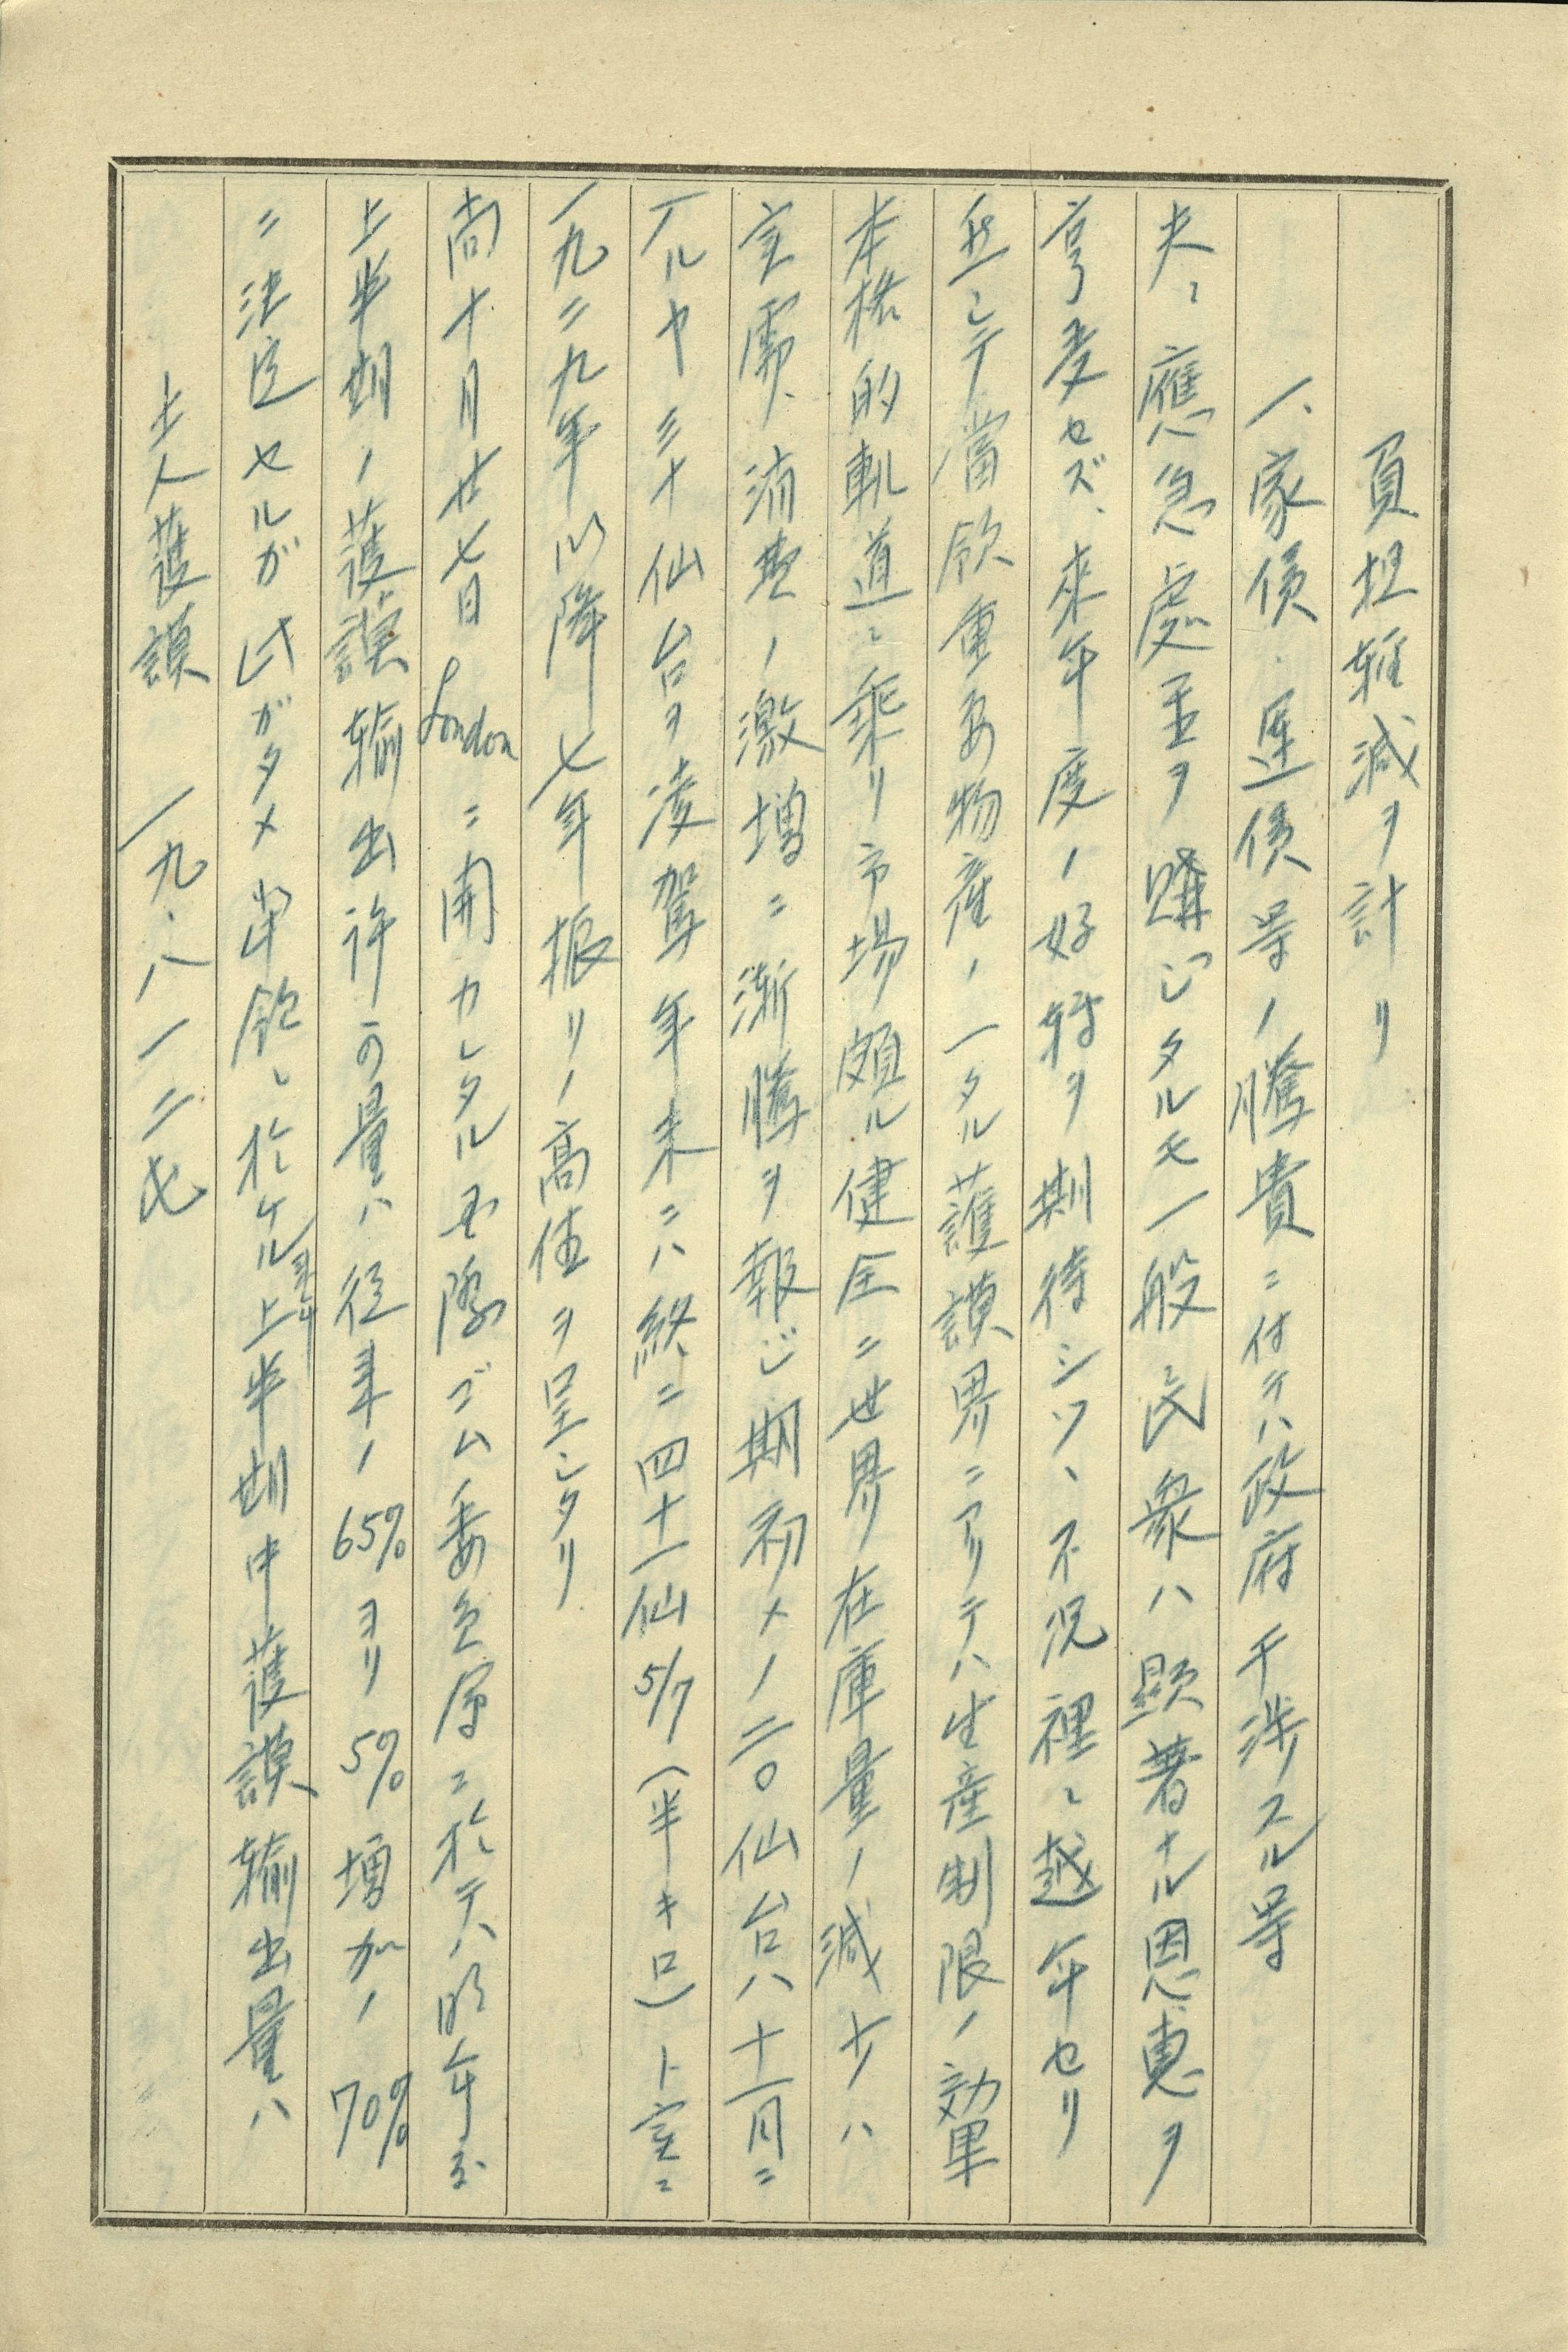 負担軽減ヲ計リ
一、家債・運債等ノ騰貴ニ付テハ政府干渉スル等
夫ニ應急處置ヲ購ジタルモ一般民衆ハ顕著ナル恩恵ヲ
享受セズ、來年度ノ好轉ヲ期待シツヽ不況裡ニ越年セリ
シテ當領重要物産ノ一タル護謨界ニアリテハ生産制限ノ効果
本格的軌道ニ乗リ市場頗ル健全ニ世界在庫量ノ減少ハ
実需、消費ノ激増ニ漸騰ヲ報ジ期初メノ二〇仙台ハ十一月ニ
入ルヤ三十仙台ヲ凌駕年末ニハ終ニ四十一仙5/7(半キロ)ト実ニ
一九二九年以降七年振リノ高値ヲ呈シタリ
尚十月廿七日Londonニ開カレタル国際ゴム委員会ニ於テハ明年度
上半期ノ護謨輸出許可量ハ従来ノ65%ヨリ5%増加ノ70%
ニ決定セルガ此ガタメ当領ニ於ケル来年上半期中護謨輸出量ハ
土人護謨 一九・八一二屯